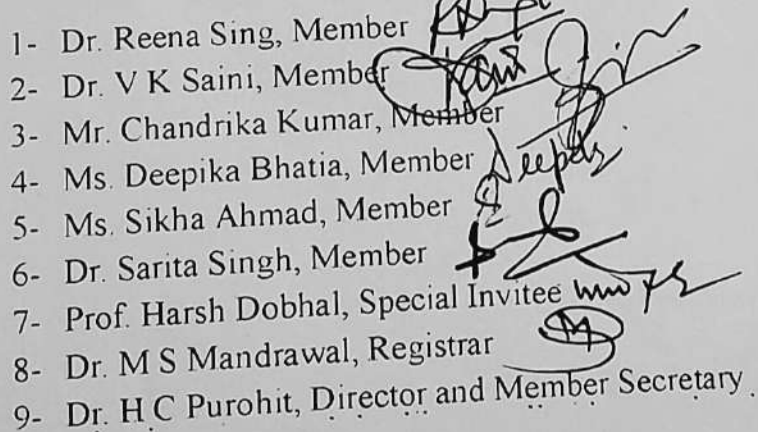 1- Dr. Reena Sing, Member
2- Dr. V K Saini, Member
3- Mr. Chandrika Kumar, Member
4- Ms. Deepika Bhatia, Member Deepika
5- Ms. Sikha Ahmad, Member
6- Dr. Sarita Singh, Member
7- Prof. Harsh Dobhal, Special Invitee
8- Dr. M S Mandrawal, Registrar
9- Dr. H C Purohit, Director and Member Secretary